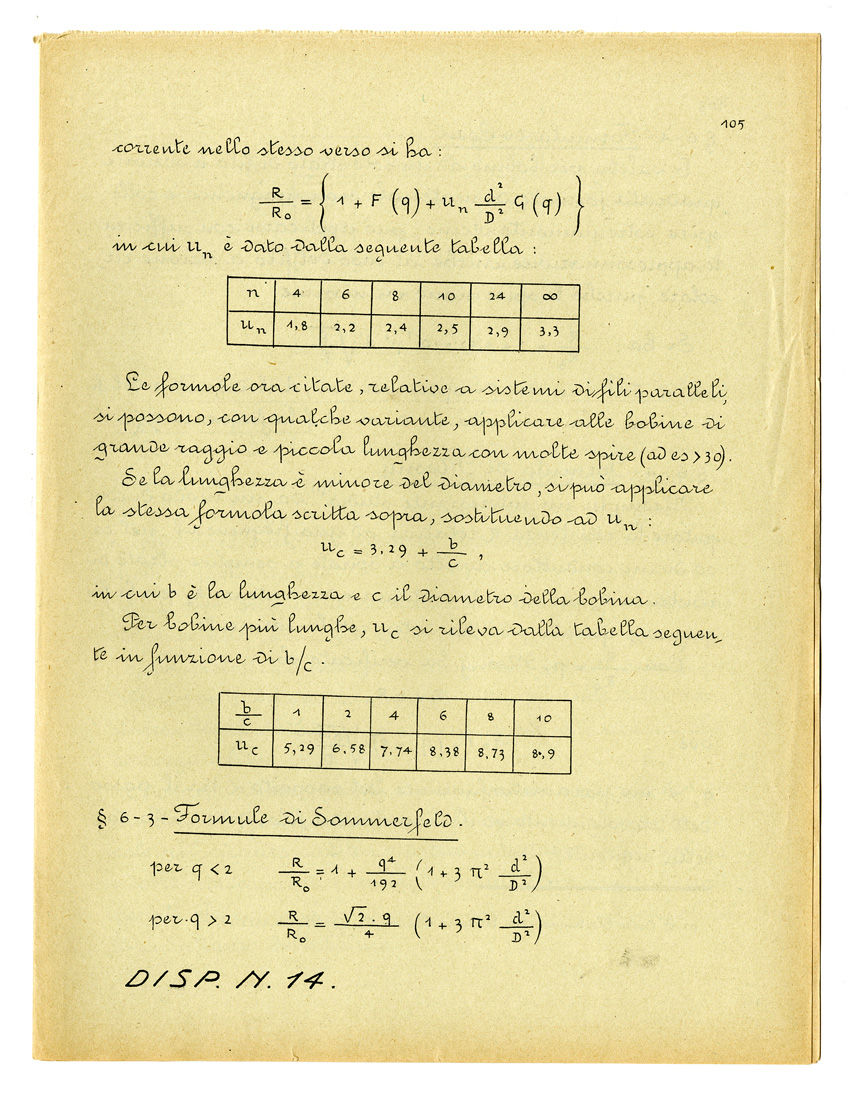 105
corrente nello stesso verso si ha :
R/R₀ = { 1 + F (q) + u_n d²/D² G (q) }
in cui u_n è dato dalla seguente tabella :
n 4 6 8 10 24 ∞
u_n 1,8 2,2 2,4 2,5 2,9 3,3
Le formole ora citate, relative a sistemi di fili paralleli,
si possono, con qualche variante, applicare alle bobine di
grande raggio e piccola lunghezza con molte spire (ad es > 30).
Se la lunghezza è minore del diametro, si può applicare
la stessa formola scritta sopra, sostituendo ad u_n :
u_c = 3,29 + b/c ,
in cui b è la lunghezza e c il diametro della bobina.
Per bobine più lunghe, u_c si rileva dalla tabella seguen-
te in funzione di b/c.
b/c 1 2 4 6 8 10
u_c 5,29 6,58 7,74 8,38 8,73 8,9
§ 6-3- Formule di Sommerfeld.
per q < 2 R/R₀ = 1 + q⁴/192 (1 + 3 π² d²/D²)
per q > 2 R/R₀ = √2 . q/4 (1 + 3 π² d²/D²)
DISP. N. 14.